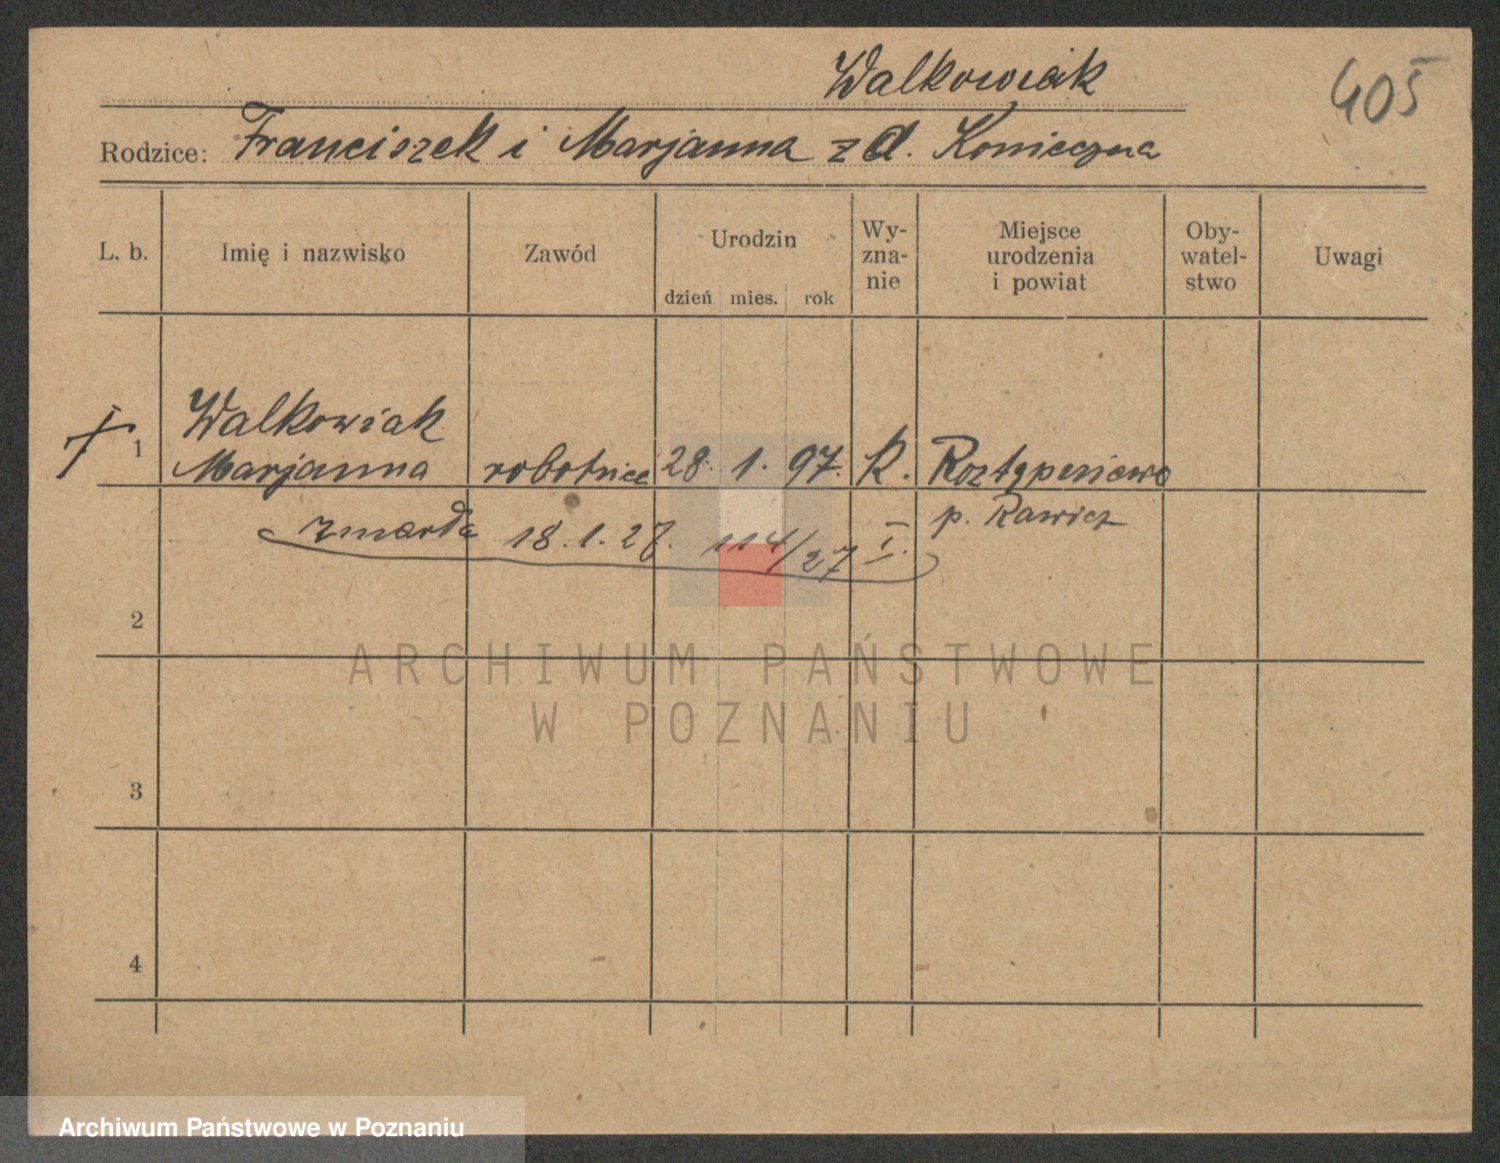 Walkowiak
405
Rodzice: Franciszek i Marjanna z d. Konieczna
L. b. Imię i nazwisko Zawód Urodzin Wy-zna-nie Miejsce urodzenia i powiat Oby-watel-stwo Uwagi
dzień mies. rok
Walkowiak
1 Marjanna robotnica 28. 1. 97. K.
p. Rawicz
zmarła 18.1.27. 114/27 I.
2
ARCHIWUM PAŃSTWOWE
W POZNANIU
3
4
Archiwum Państwowe w Poznaniu